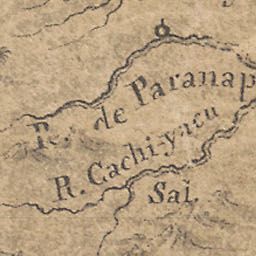 R. de Paranap
R. Cachi-yacu
Sal.